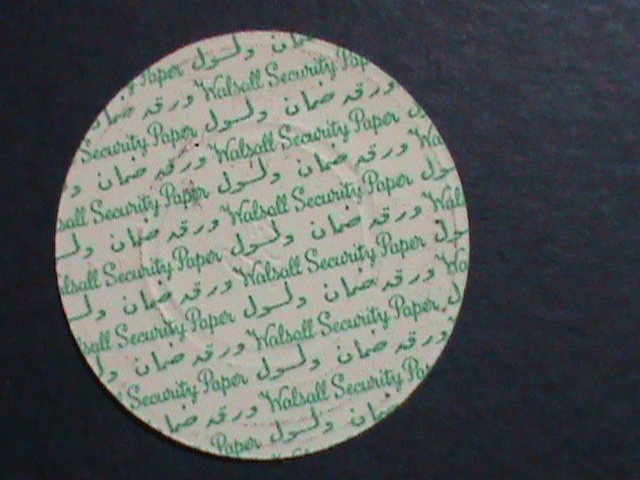 ضمان ولسول
Paper Walsall Security Pap
ورقه ضمان ولسول
Security Paper Walsall Security Paper Wa
ورقه ضمان ولسول ورقه ضمان ولسول
Walsall Security Paper Walsall Security Paper Wals
ورقه ضمان ولسول ورقه ضمان ولسول
alsall Security Paper Walsall Security Paper Wa
ورقه ضمان ولسول ورقه ضمان ولسول
sall Security Paper Walsall Security Paper
ورقه ضمان ولسول ورقه ضمان
Security Paper Walsall Security Pa
ضمان ولسول ورقه ضما
Paper